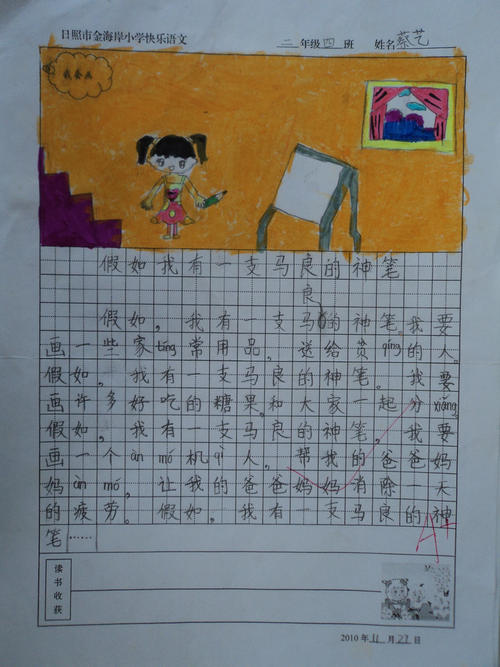 日照市金海岸小学快乐语文 二年级四班 姓名蔡艺
我会画
假如我有一支马良的神笔
良
假如，我有一支马的神笔。我要
画一些家tíng常用品。送给贫qíng的人。
假如，我有一支马良的神笔。我要
画许多好吃的糖果。和大家一起分xiǎng
假如，我有一支马良的神笔。我要
画一个àn mó机qì人。帮我的爸爸妈
妈àn mó，让我的爸爸妈妈消除一天
的疲劳。假如，我有一支马良的神
笔……
A
读书收获
2010年11月27日